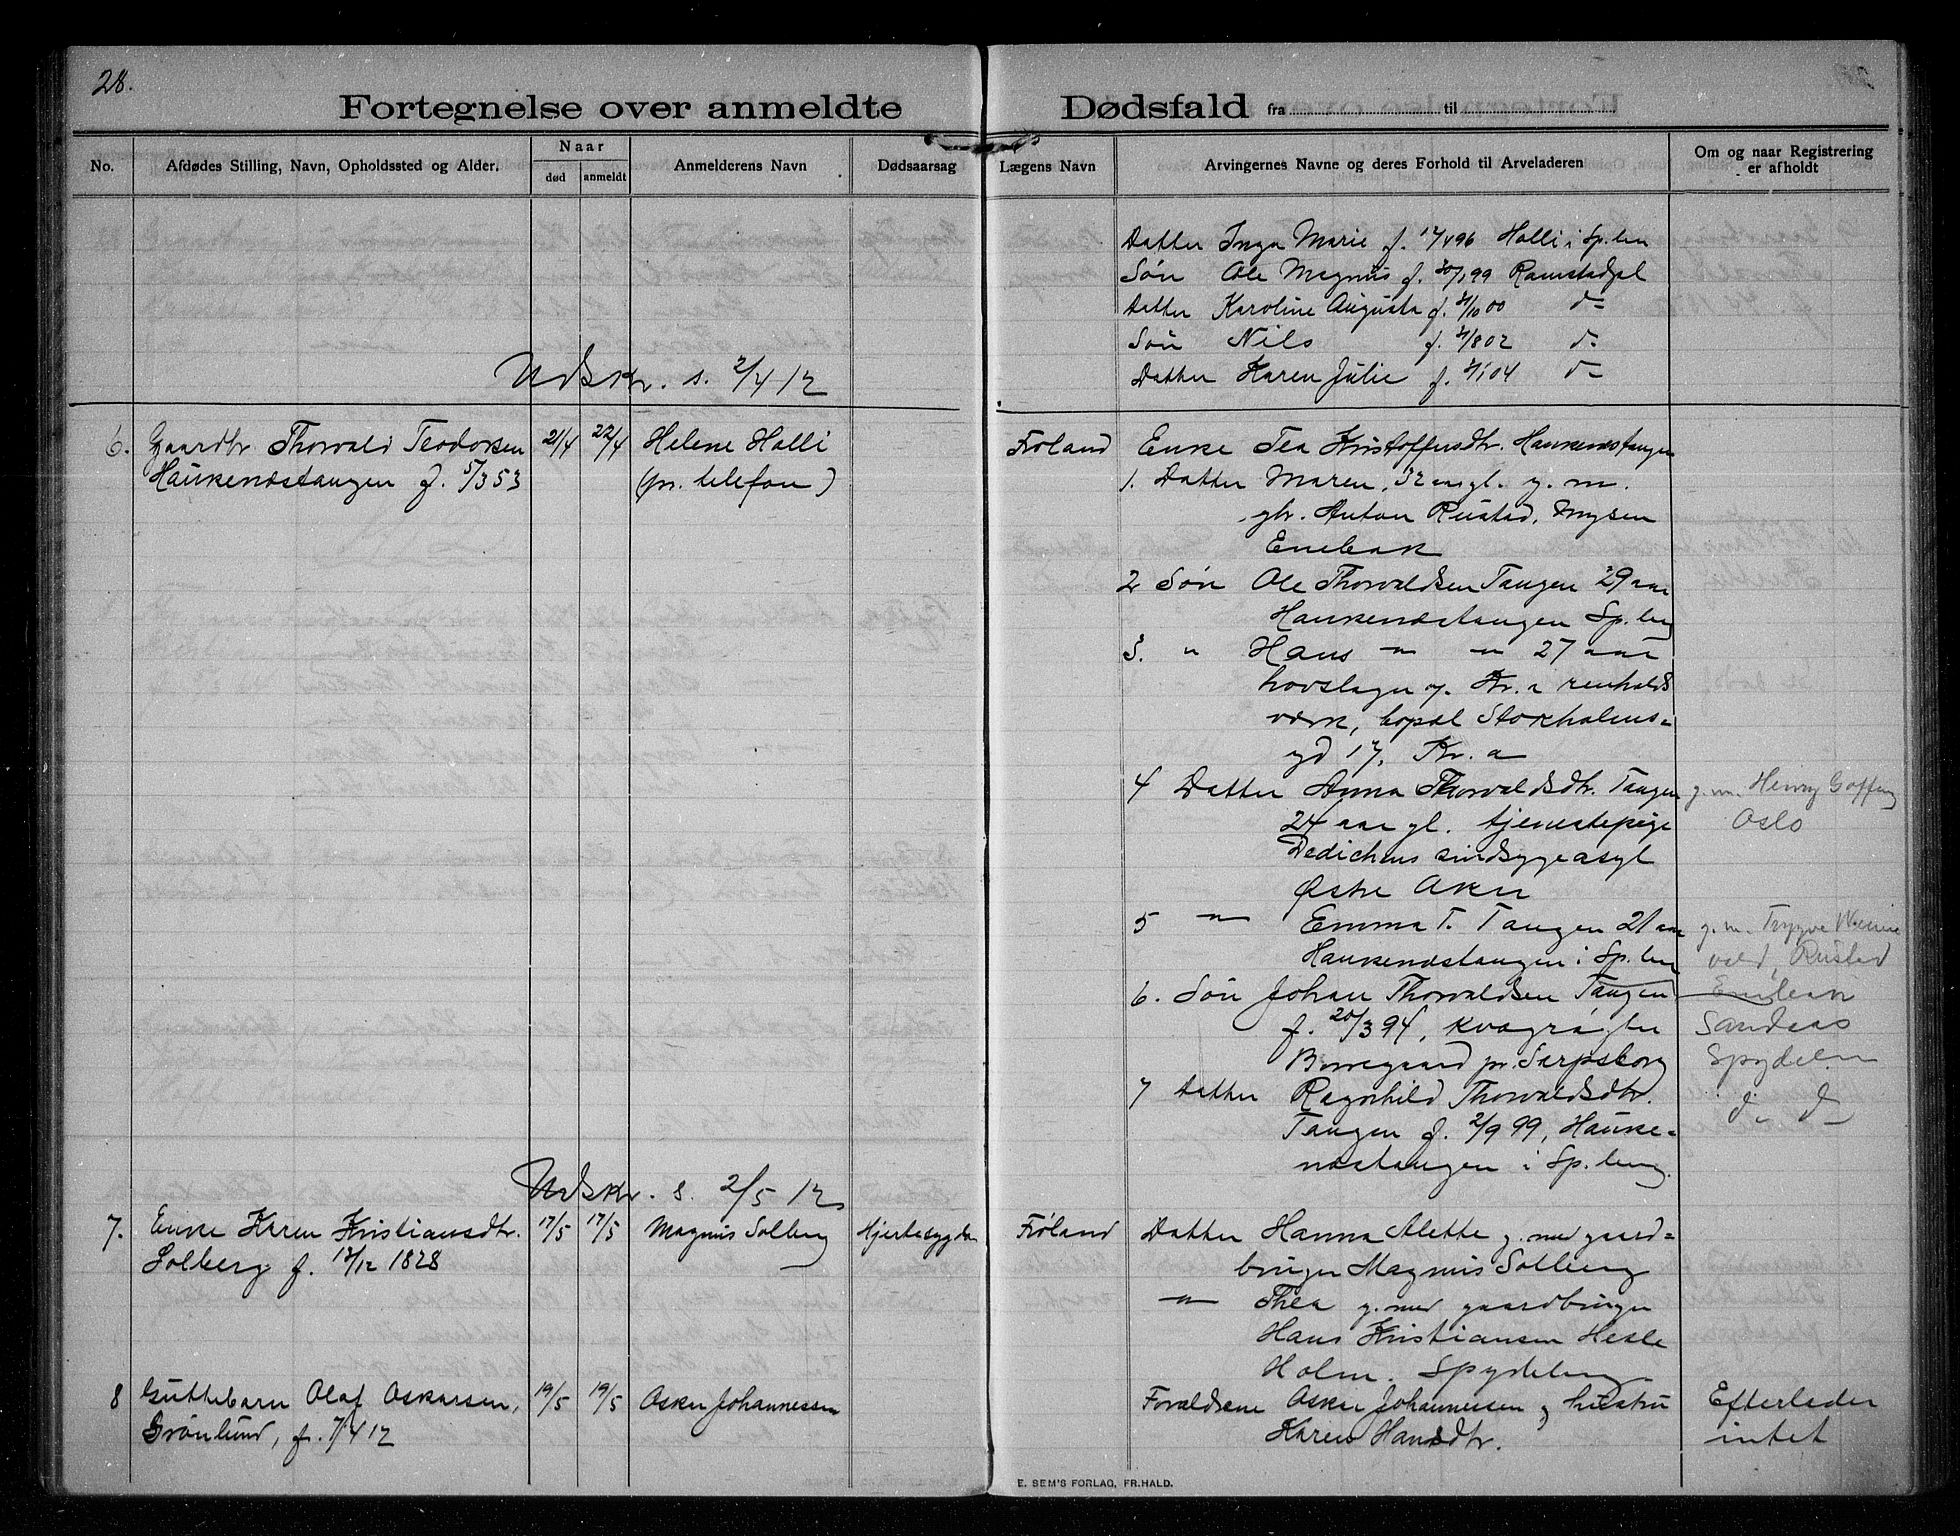 28.
Fortegnelse over anmeldte Dødsfald fra til
No. Afdødes Stilling, Navn, Opholdssted og Alder. Naar død anmeldt Anmelderens Navn Dødsaarsag Lægens Navn Arvingernes Navne og deres Forhold til Arveladeren Om og naar Registrering er afholdt
Datter Inga Marie f. 17/4 96 Holli i Sp.ben
Søn Ole Magnus f. 30/1 99 Ramstadpl
Datter Karoline Augusta f. 21/10 00 d-
Søn Nils f. 21/8 02 d-
Datter Karen Julie f. 2/1 04 d-
Udskr. s. 2/4 12
6. Gaardbr Thorvald Teodorsen 21/4 22/4 Helene Holli Frøland Enke Tea Kristoffersdtr. Haukenæstangen
Haukenæstangen f. 5/3 53 (pr. telefon) 1. Datter Maren, 32 aar gl. g. m.
gbr. Anton Rustad, Mysen
Enebak
2 Søn Ole Thorvaldsen Tangen 29 aar
Haukenæstangen Sp.berg
3. " Hans - - 27 aar
hovslager v. Kr.a renholds
værk, bopæl Stockholms-
gd 17, Kr.a
4 Datter Anna Thorvaldsdtr. Tangen g. m. Henry
24 aar gl. tjenestepige Oslo
Dedichens sindsygeasyl
Østre Aker
5 - Emma T. Tangen 21 aar g. m. Trygve
Haukenæstangen i Sp.ben vold, Rustad
6. Søn Johan Thorvaldsen Tangen Enebak
f. 20/3 94, kvægrøgter Sandaas
Borregaard pr. Sarpsborg Spydeb.
7 Datter Ragnhild Thorvaldsdtr. d- d-
Tangen f. 2/9 99, Hauke-
næstangen i Sp.berg.
Udskr. s. 2/5 12
7. Enke Karen Kristiansdtr. 17/5 17/5 Magnus Solberg Hjertesygdom Frøland Datter Hanna Alette g. med gaard-
Solberg f. 12/12 1828 bruger Magnus Solberg
- Thea g. med gaardbruger
Hans Kristiansen Hesle
Holm. Spydeberg
8 Guttebarn Olaf Oskarsen, 19/5 19/5 Oskar Johannessen Forældrene Oskar Johannessen og hustru Efterlader
Grønlund, f. 7/4 12 Karen Hansdtr. intet
E. SEM'S FORLAG, FR.HALD.